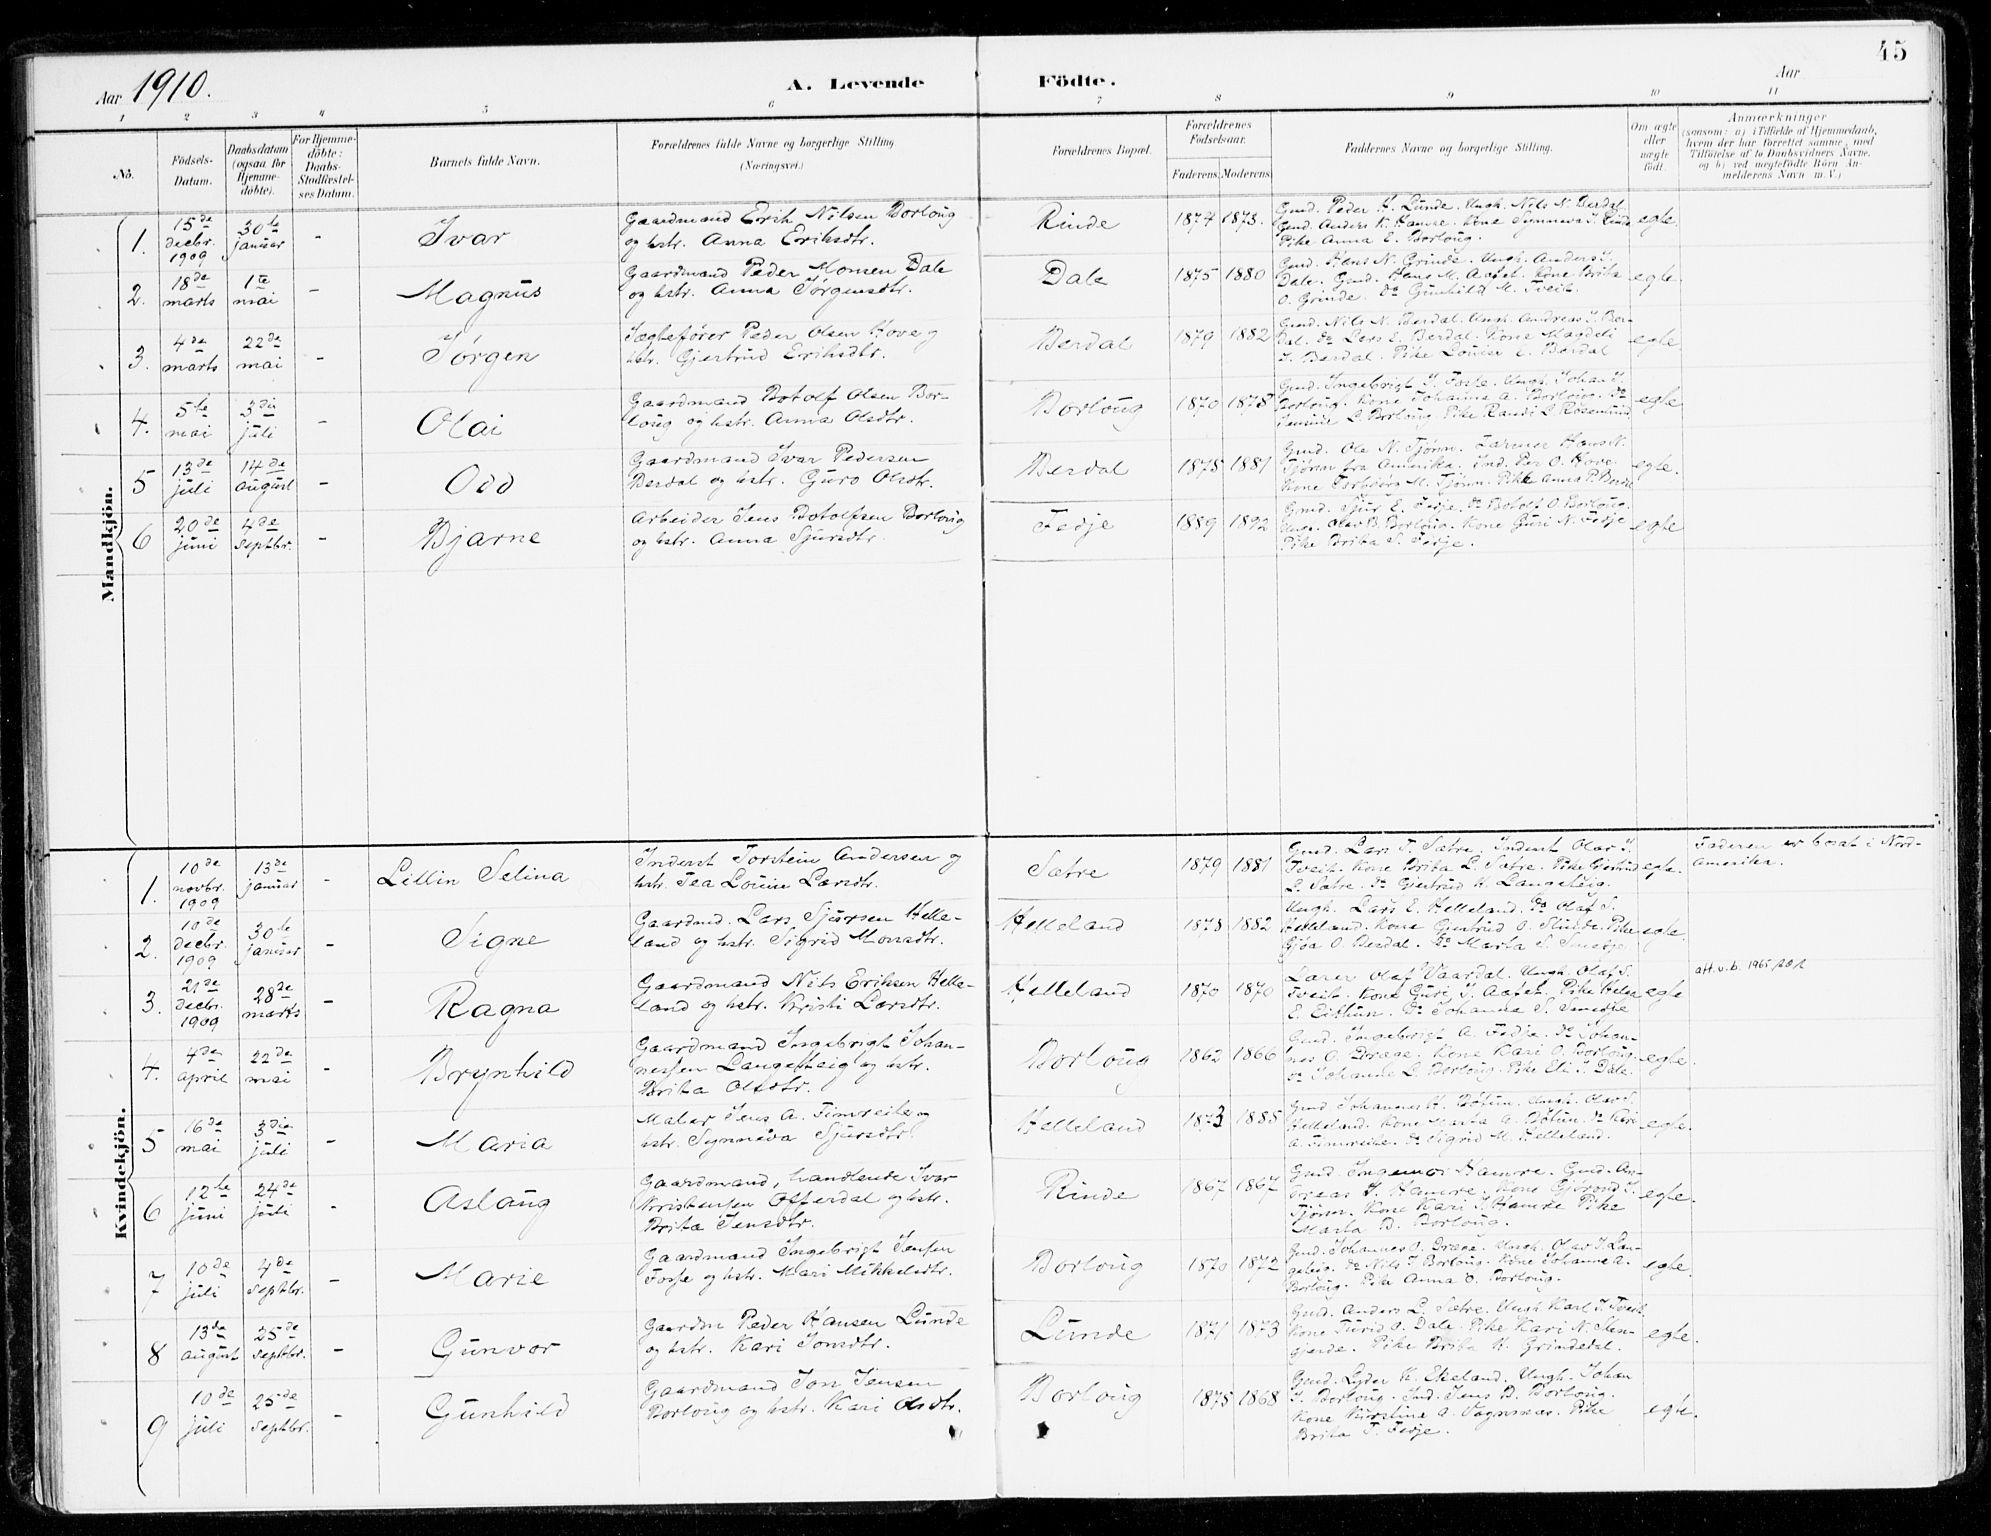 45
Aar 1910. A. Levende Födte. Aar
1 2 3 4 5 6 7 8 9 10 11
No. Födsels-Datum. Daabsdatum (ogsaa for Hjemme-döbte). For Hjemme-döbte: Daabs-Stadfæstel-ses Datum. Barnets fulde Navn. Forældrenes fulde Navne og borgerlige Stilling (Næringsvei.) Forældrenes Bopæl. Forældrenes Födselsaar. Faderens. Moderens. Faddernes Navne og borgerlige Stilling. Om ægte eller uægte födt. Anmærkninger (saasom: a) i Tilfælde af Hjemmedaab, hvem der har forrettet samme, med Tilföielse af to Daabsvidners Navne, og b) ved uægtefödte Börn An-melderens Navn m. V.)
Mandkjön.
1. 15de decbr. 1909 30te januar - Ivar Gaardmand Erik Nilsen Borloug og hstr. Anna Eriksdtr. Rinde 1874 1873. Gmd. Peder H. Lunde. Ungk. Nils N. Berdal. Gmd. Anders K. Hamre. Kone Synneva I. Rinde Pike Anna E. Borloug. egte.
2. 18de marts 1te mai - Magnus Gaardmand Peder Monsen Dale og hstr. Anna Jørgensdtr. Dale 1875 1880 Gmd. Hans N. Grinde. Ungk. Anders I. Dale. Gmd. Hans M. Aafet. Kone Brita O. Grinde. Do Gunhild M. Tveit. egte.
3. 4de marts 22de mai - Jørgen Jægtefører Peder Olsen Hove og hstr. Gjertrud Eriksdtr. Berdal 1879 1882 Gmd. Nils N. Berdal. Ungk. Andreas I. Ber-dal. Do Lars E. Berdal. Kone Magdeli I. Berdal. Pike Louise E. Berdal egte
4. 5te mai 3die juli - Olai Gaardmand Botolf Olsen Bor-loug og hstr. Anna Olsdtr. Borloug 1870 1878 Gmd. Ingebrigt J. Fosse. Ungk. Johan I. Borloug. Kone Johanna A. Borloug. Do Jensine L. Borloug Pike Randi L. Rosenlund egte
5 13de juli 14de august - Odd Gaardmand Ivar Pedersen Berdal og hstr. Guro Olsdtr. Berdal 1878 1881 Gmd. Ole N. Tjønn. Farmer Hans N. Tjønn fra Amerika. Ind. Per O. Hove. Kone Torbjøra M. Tjønn. Pike Anna P. Berdal egte.
6 20de juni 4de septbr. - Bjarne Arbeider Jens Botolfsen Borloug og hstr. Anna Sjursdtr. Fedje 1889 1892 Gmd. Sjur E. Fedje. Do Botolf O. Borloug. Ungk. Olav B. Borloug. Kone Guri N. Fedje Pike Brita S. Fedje. egte
Kvindekjön.
1. 10de novbr. 1909 13de januar - Lillin Selina Inderst Torstein Andersen og hstr. Tea Louise Larsdtr. Sætre 1879 1881 Gmd. Lars T. Sætre. Inderst Olav I. Tveit. Kone Brita L. Sætre. Pike Gjertrud L. Sætre. Do Gjertrud H. Langeteig. egte. Faderen er bosat i Nord-amerika.
2. 10de decbr. 1909 30te januar - Signe Gaardmd. Lars Sjursen Helle-land og hstr. Sigrid Monsdtr. Helleland 1878 1882 Ungk. Lars E. Helleland. Do Olaf S. Helleland. Kone Gjertrud O. Slinde. Pike Gjøa O. Berdal. Do Marta S. Smedje egte.
3. 21de decbr. 1909 28de marts - Ragna Gaardmand Nils Eriksen Helle-land og hstr. Kristi Larsdtr. Helleland 1870 1870 Lærer Olaf Vaardal. Ungk. Olaf S. Tveit. Kone Guri I. Aafet. Pike Helga E. Eithun. Do Johanna S. Smedje egte att. u. b. 1965
4. 4de april 22de mai - Brynhild Gaardmand Ingebrigt Johan-nessen Langeteig og hstr. Brita Olsdtr. Borloug 1862 1866 Gmd. Ingebrigt A. Fedje. Do Johan-nes O. Dræge. Kone Kari O. Borloug. Do Johanne L. Borloug. Pike Eli I. Dale. egte.
5 16de mai 3die juli - Maria Maler Jens A. Fimreite og hstr. Synneva Sjursdtr. Helleland 1873 1885 Gmd. Johannes H. Bøtun. Ungk. Olav S. Helleland. Kone Marta A. Bøtun. Do Kari A. Fimreite. Do Sigrid M. Helleland. egte.
6 12te juni 24de juli - Aslaug Gaardmand, handlende Ivar Kristensen Offerdal og hstr. Brita Jensdtr. Rinde 1867 1867 Gmd. Ingemor Hamre. Gmd. An-dreas I. Hamre. Kone Gjørond I. Tjønn. Kone Kari I. Hamre Pike Marta B. Borloug. egte.
7 10de juli 4de septbr. - Marie Gaardmand Ingebrigt Jensen Fosse og hstr. Kari Mikkelsdtr. Borloug 1870 1872 Gmd. Johannes O. Dræge. Ungk. Olav I. Lan-geteig. Do Nils I. Borloug. Kone Johanna A. Borloug. Pike Anna O. Borloug. egte.
8 13de august 25de septbr. - Gunvor Gaardm Peder Hansen Lunde og hstr. Kari Jonsdtr. Lunde 1871 1873 Gmd. Anders L. Sætre. Ungk Karl I. Tveit. Kone Turid O. Dale. Pike Kari N. Sten-gjerde. Pike Brita H. Grindedal. egte.
9 10de juli 25de septbr. - Gunhild Gaardmand Jon Jensen Borloug og hstr. Kari Olsdtr. Borloug 1875 1868 Gmd. Lyder H. Ekeland. Ungk. Johan I. Borloug. Ind. Jens B. Borloug. Kone Kirstina A. Vagnsnæs. Pike Brita T. Fedje. egte.